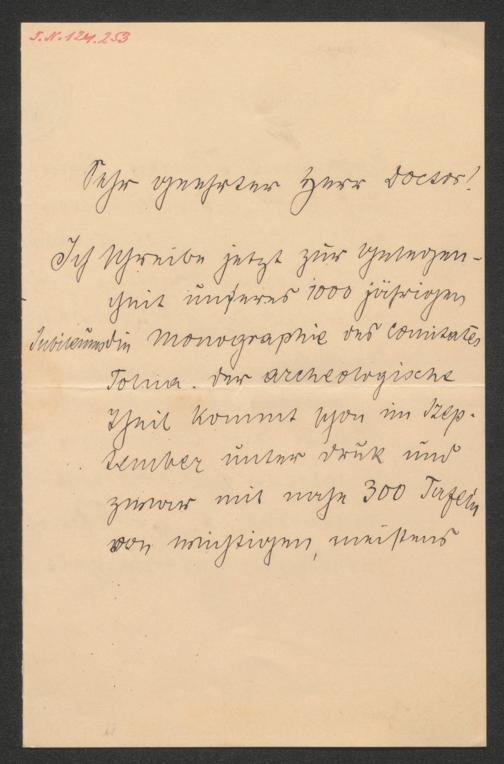 J.N. 124.253
Sehr geehrter Herr Doctor!
Ich schreibe jetzt zur Gelegen-
heit unseres 1000 jährigen
Jubileums die Monographie des Comitates
Tolna. Der archeologische
Theil kommt schon im Szep-
tember unter druk und
zwar mit nahe 300 Tafeln
von wichtigen, meistens